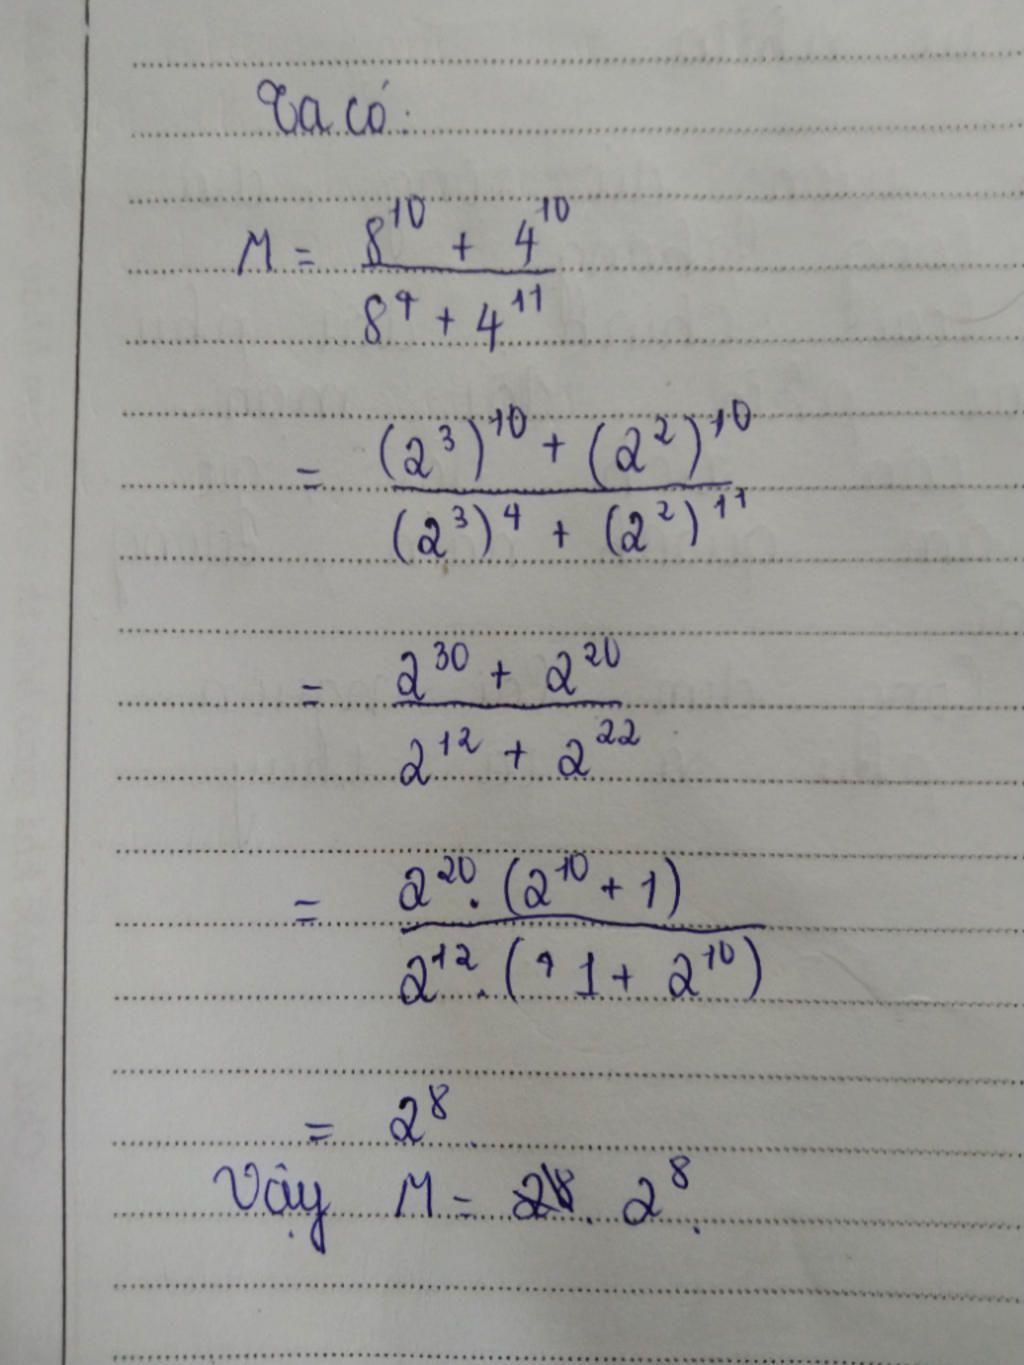 Ta có:
M = \frac{8^{10} + 4^{10}}{8^4 + 4^{11}}
= \frac{(2^3)^{10} + (2^2)^{10}}{(2^3)^4 + (2^2)^{11}}
= \frac{2^{30} + 2^{20}}{2^{12} + 2^{22}}
= \frac{2^{20} . (2^{10} + 1)}{2^{12} . (1 + 2^{10})}
= 2^8
Vậy M = 2^8.